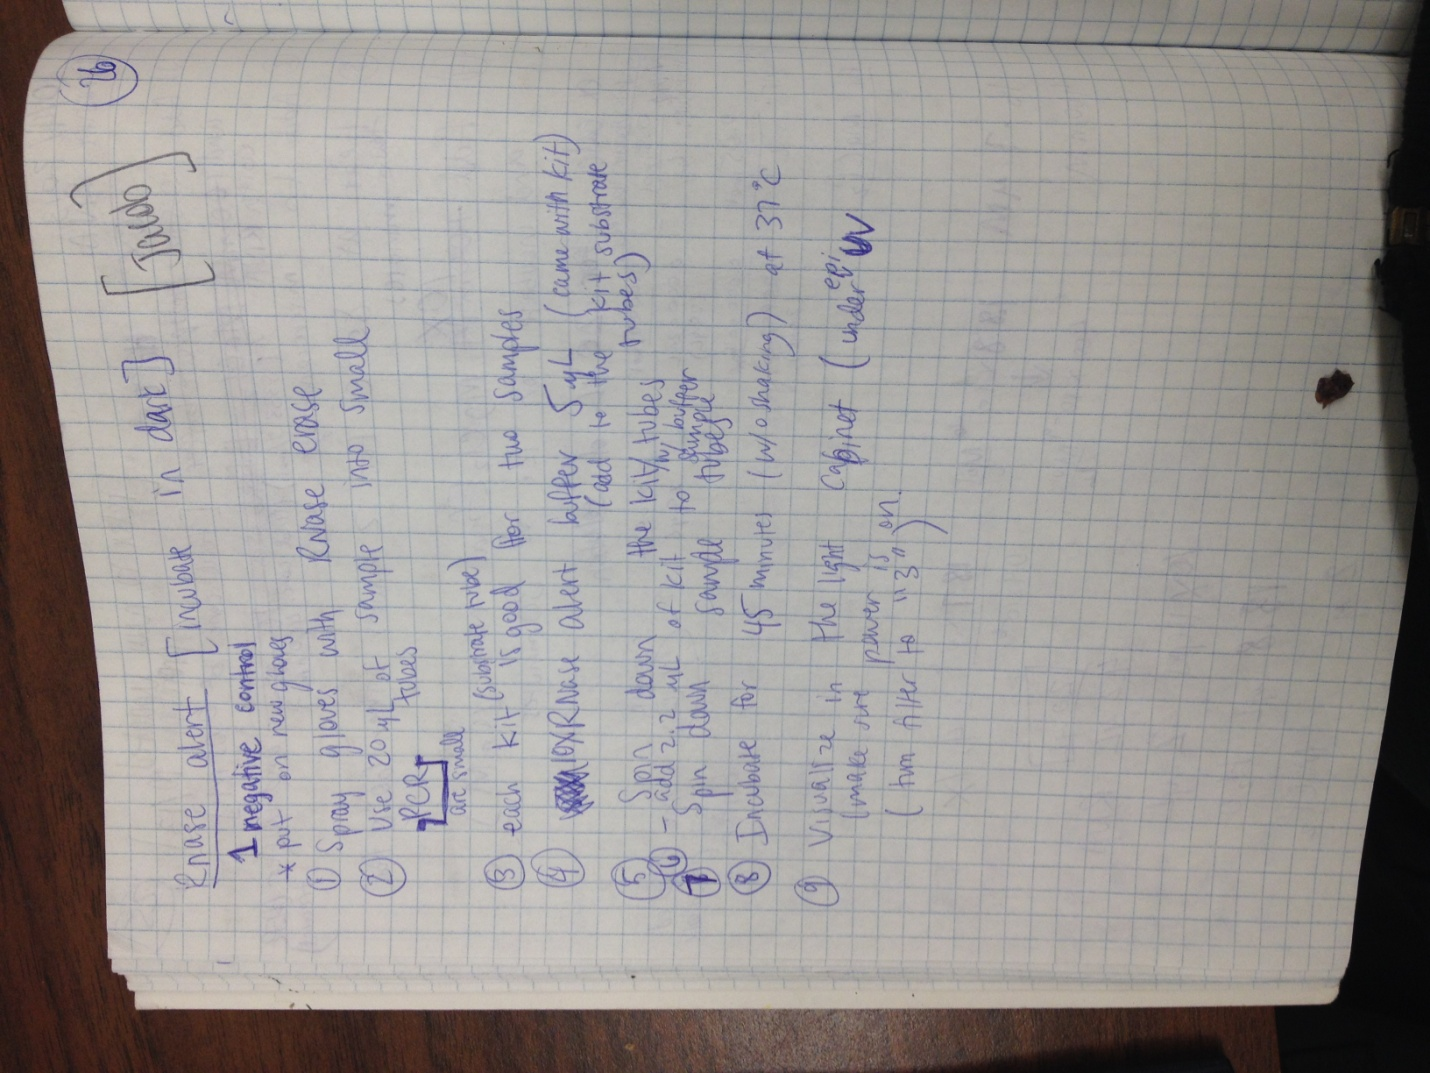 26
Rnase alert [incubate in dark]
1 negative control
* put on new gloves
① Spray gloves with RNase erase
② Use 20 uL of sample into small
[PCR] tubes
are small
③ each kit (substrate tube) is good for two samples
④ 10X RNase alert buffer 5 uL (came with kit)
(add to the kit substrate
tubes)
⑤ Spin down the kit w/ buffer tubes
⑥ - add 2.2 uL of kit to sample tubes
⑦ Spin down sample tubes
⑧ Incubate for 45 minutes (w/o shaking) at 37°C
⑨ Visualize in the light cabinet (under epi UV
(make sure power is on.
(turn filter to "3")